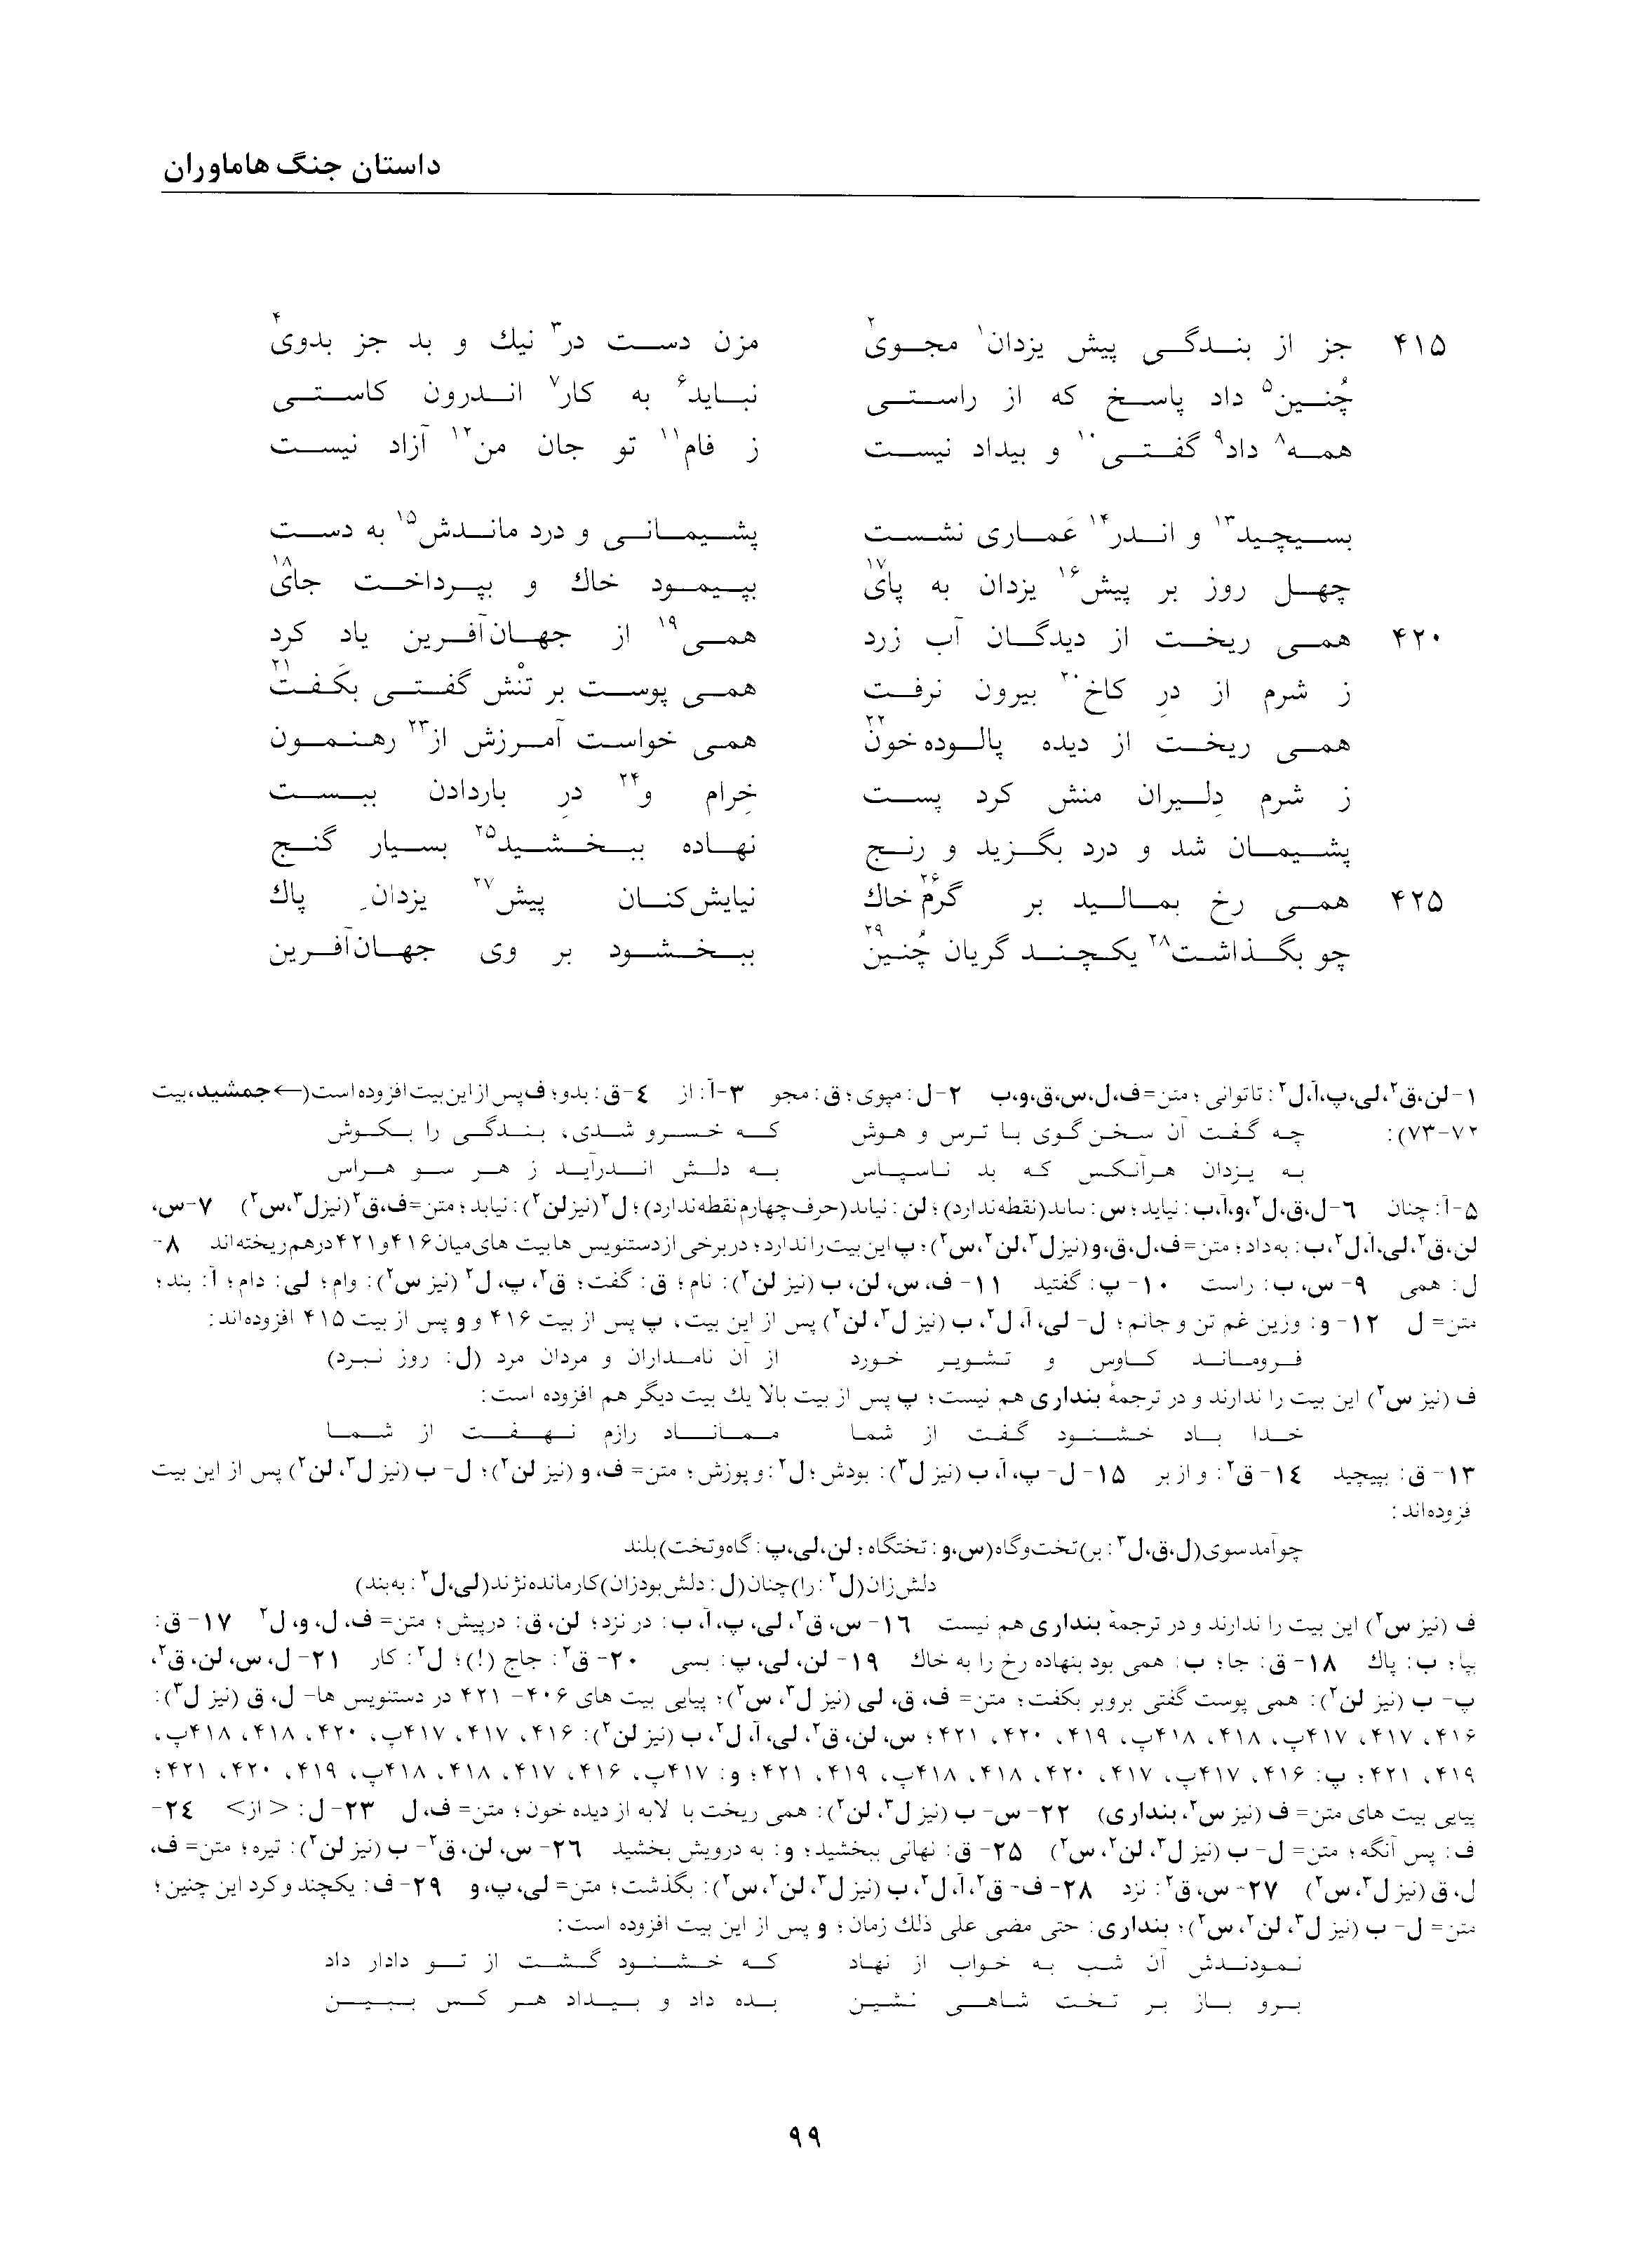 داستان جنگ هاماوران
۴۱۵ جز از بندگی پیش یزدان۱ مجوی۲ مزن دست در۳ نیك و بد جز بدوی۴
چُنین۵ داد پاسخ که از راستی نیابد۶ به کار۷ اندرون کاستی
همه۸ داد۹ گفتی۱۰ و بیداد نیست ز فام۱۱ تو جان من۱۲ آزاد نیست
بسیچید۱۳ و اندر۱۴ عَماری نشست پشیمانی و درد ماندش۱۵ به دست
چهل روز بر پیش۱۶ یزدان به پای۱۷ بپیمود خاك و بپرداخت جای۱۸
۴۲۰ همی ریخت از دیدگان آب زرد همی۱۹ از جهان‌آفرین یاد کرد
ز شرم از درِ کاخ۲۰ بیرون نرفت همی پوست بر تنْش گفتی بکَفت۲۱
همی ریخت از دیده پالوده خون۲۲ همی خواست آمرزش از۲۳ رهنمون
ز شرم دِلیران منش کرد پست خِرام و۲۴ درِ باردادن ببست
پشیمان شد و درد بگزید و رنج نهاده ببخشید۲۵ بسیار گنج
۴۲۵ همی رخ بمالید بر گرم۲۶ خاك نیایش‌کنان پیش۲۷ یزدانِ پاك
چو بگذاشت۲۸ یکچند گریان چُنین۲۹ ببخشود بر وی جهان‌آفرین
۱-لن،ق۲،لی،پ،آ،ل۲: تاتوانی؛ متن=ف،ل،س،ق،و،ب ۲-ل: مپوی؛ ق: مجو ۳-آ: از ۴-ق: بدو؛ ف پس از این بیت افزوده است (← جمشید، بیت
۷۲-۷۳):
چه گفت آن سخن گوی با ترس و هوش که خسرو شدی، بندگی را بکوش
به یزدان هرآنکس که بد ناسپاس به دلش اندرآید ز هر سو هراس
۵-آ: چنان ۶-ل،ق،ل۲،و،آ،ب: نیاید؛ س: ىىاىد (نقطه ندارد)؛ لن: نیاىد (حرف چهارم نقطه ندارد)؛ ل۲ (نیز لن۲): نیابد؛ متن=ف،ق۲ (نیز ل۳،س۲) ۷-س،
لن،ق۲،لی،آ،ل۲،ب: به داد؛ متن=ف،ل،ق،و (نیز ل۳،لن۲،س۲)؛ پ این بیت را ندارد؛ در برخی از دستنویس ها بیت های میان ۴۱۶ و ۴۲۱ درهم ریخته اند ۸-
ل: همی ۹- س، ب: راست ۱۰- پ: گفتید ۱۱- ف، س، لن، ب (نیز لن۲): نام؛ ق: گفت؛ ق۲، پ، ل۲ (نیز س۲): وام؛ لی: دام؛ آ: بند؛
متن= ل ۱۲- و: وزین غم تن و جانم؛ ل- لی، آ، ل۲، ب (نیز ل۳، لن۲) پس از این بیت، پ پس از بیت ۴۱۶ و و پس از بیت ۴۱۵ افزوده‌اند:
فروماند کاوس و تشویر خورد از آن نامداران و مردان مرد (ل: روز نبرد)
ف (نیز س۲) این بیت را ندارند و در ترجمهٔ بنداری هم نیست؛ پ پس از بیت بالا یك بیت دیگر هم افزوده است:
خدا باد خشنود گفت از شما مماناد رازم نهفت از شما
۱۳- ق: بپیچید ۱۴-ق۲: و از بر ۱۵- ل- پ، آ، ب (نیز ل۳): بودش؛ ل۲: و پوزش؛ متن= ف، و (نیز لن۲)؛ ل- ب (نیز ل۳، لن۲) پس از این بیت
فزوده‌اند:
چو آمد سوی (ل،ق،ل۲: بر) تخت و گاه (س،و: تختگاه؛ لن،لی،پ: گاه و تخت) بلند
دلش زان (ل۲: را) چنان (ل: دلش بود زان) کار مانده نژند (لی،ل۲: به بند)
ف (نیز س۲) این بیت را ندارند و در ترجمهٔ بنداری هم نیست ۱۶- س، ق۲، لی، پ، آ، ب: در نزد؛ لن، ق: درپیش؛ متن= ف، ل، و، ل۲ ۱۷- ق:
بپا؛ ب: پاك ۱۸- ق: جا؛ ب: همی بود بنهاده رخ را به خاك ۱۹- لن، لی، پ: بسی ۲۰- ق۲: جاج (!)؛ ل۲: کار ۲۱- ل، س، لن، ق۲،
پ- ب (نیز لن۲): همی پوست گفتی بروبر بکفت؛ متن= ف، ق، لی (نیز ل۳، س۲)؛ پیاپی بیت های ۴۰۶- ۴۲۱ در دستنویس ها- ل، ق (نیز ل۳):
۴۱۶، ۴۱۷، ۴۱۷پ، ۴۱۸، ۴۱۸پ، ۴۱۹، ۴۲۰، ۴۲۱؛ س، لن، ق۲، لی، آ، ل۲، ب (نیز لن۲): ۴۱۶، ۴۱۷، ۴۱۷پ، ۴۲۰، ۴۱۸، ۴۱۸پ،
۴۱۹، ۴۲۱؛ پ: ۴۱۶، ۴۱۷پ، ۴۱۷، ۴۲۰، ۴۱۸، ۴۱۸پ، ۴۱۹، ۴۲۱؛ و: ۴۱۷پ، ۴۱۶، ۴۱۷، ۴۱۸، ۴۱۸پ، ۴۱۹، ۴۲۰، ۴۲۱؛
پیاپی بیت های متن= ف (نیز س۲، بنداری) ۲۲- س- ب (نیز ل۳، لن۲): همی ریخت با لابه از دیده خون؛ متن= ف، ل ۲۳- ل: <از> ۲۴-
ف: پس آنگه؛ متن= ل- ب (نیز ل۳، لن۲، س۲) ۲۵- ق: نهانی ببخشید؛ و: به درویش بخشید ۲۶- س، لن، ق۲- ب (نیز لن۲): تیره؛ متن= ف،
ل، ق (نیز ل۳، س۲) ۲۷- س، ق۲: نزد ۲۸- ف- ق۲، آ، ل۲، ب (نیز ل۳، لن۲، س۲): بگذشت؛ متن= لی، پ، و ۲۹- ف: یکچند و کرد این چنین؛
متن= ل- ب (نیز ل۳، لن۲، س۲)؛ بنداری: حتی مضی علی ذلك زمان؛ و پس از این بیت افزوده است:
نمودندش آن شب به خواب از نهاد که خشنود گشت از تو دادار داد
برو باز بر تخت شاهی نشین بده داد و بیداد هر کس ببین
۹۹